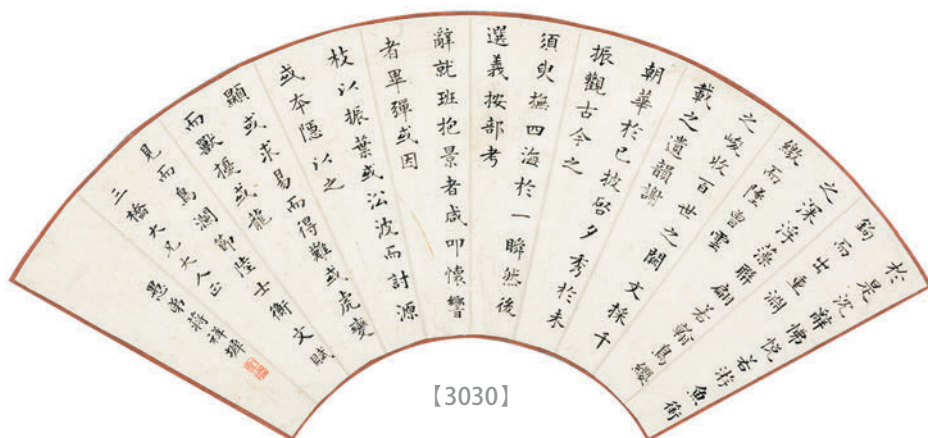 於是沉辭怫悅若游魚銜
鉤而出重淵
之深浮藻聯翩若翰鳥纓
繳而墜曾雲
之峻收百世之闕文採千
載之遺韻謝
朝華於已披启夕秀於未
振觀古今之
須臾撫四海於一瞬然後
選義按部考
辭就班抱景者咸叩懷響
者畢彈或因
枝以振葉或沿波而討源
或本隱以之
顯或求易而得難或虎變
而獸擾或龍
見而鳥瀾節陸士衡文賦
三橋大兄大人正
愚弟蔣祥墀
【3030】